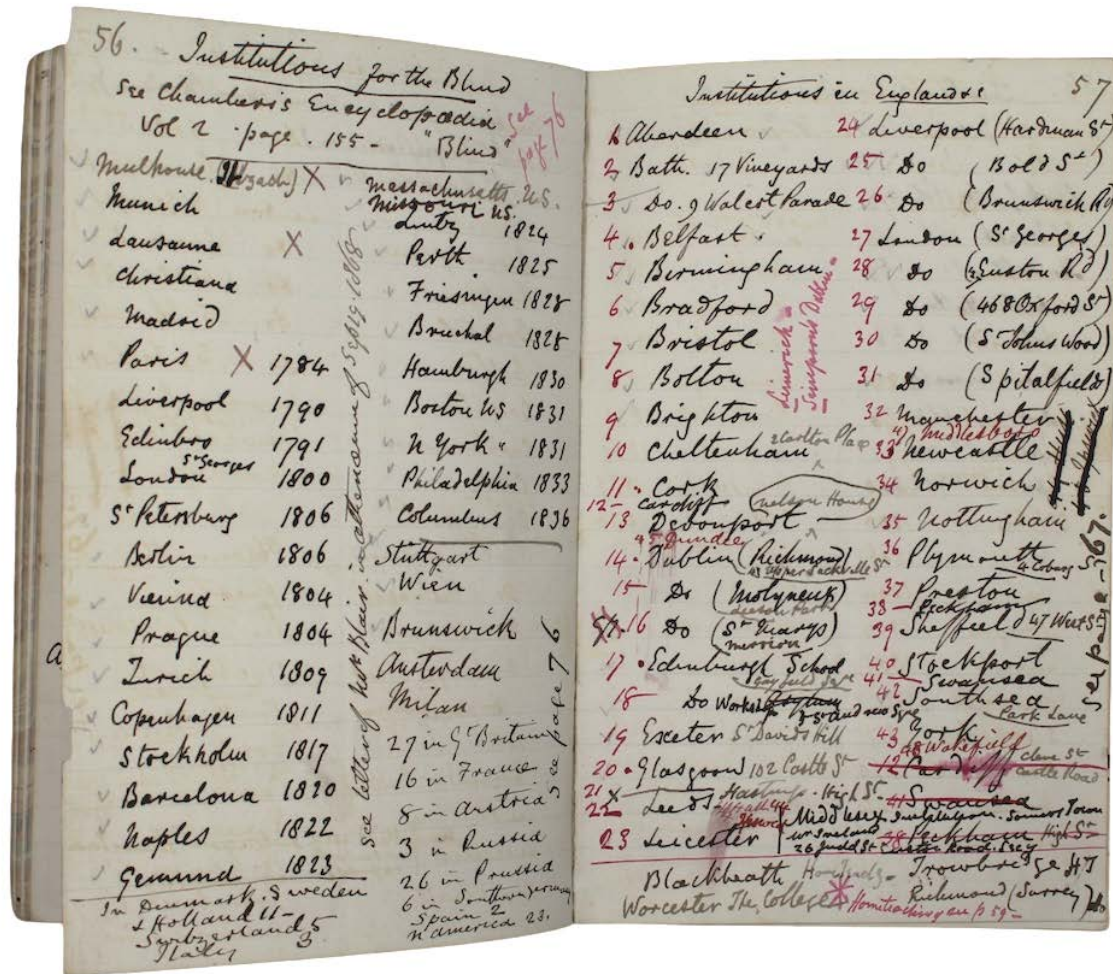 56.
Institutions for the Blind
See Chambers's Encyclopædia
Vol 2 . page . 155 - "Blind"
See page 76
Mulhouse
Munich
Lausanne X
Christiana
Madrid
Paris X 1784
Liverpool 1790
Edinbro 1791
London St Georges 1800
St Petersburg 1806
Berlin 1806
Vienna 1804
Prague 1804
Zurich 1809
Copenhagen 1811
Stockholm 1817
Barcelona 1820
Naples 1822
Gemund 1823
In Denmark. Sweden
& Holland 11 -
Switzerland 5
Italy 3
see letter of Wm Blair in athenaeum of Sep 19 1868
Massachusetts. U.S.
Missouri US.
Lintz 1824
Perth 1825
Friesingen 1828
Bruchal 1828
Hamburgh 1830
Boston US 1831
N York " 1831
Philadelphia 1833
Columbus 1836
Stuttgart
Wien
Brunswick
Amsterdam
Milan
27 in Gt Britain
16 in France
8 in Austria
3 in Russia
26 in Prussia
6 in Southern Germany
Spain 2
N America 23.
see page 76
57
Institutions in England &c
1 Aberdeen
2 Bath. 17 Vineyards
3 Do. 9 Walcot Parade
4 Belfast
5 Birmingham
6 Bradford
7 Bristol
8 Bolton
9 Brighton
10 Cheltenham 2 Carlton Place
11 Cork
12 - Cardiff
Nelson House
13 Devonport
45 Dundee
14 Dublin (Richmond)
41 Upper Sackville St
15 Do (Molyneux)
Leeson Park
16 Do (St Marys)
Merrion
17 Edinburgh School
Gayfield Sqre
18 Do Workshop Asylum
St Andrew Sqre
19 Exeter St Davids Hill
20 Glasgow 102 Castle St
21 X Hastings - High St
22 Leeds
23 Leicester
Limerick
Simpsons Dublin
24 Liverpool (Hardman St)
25 Do (Bold St)
26 Do (Brunswick Rd)
27 London (St Georges)
28 Do (Euston Rd)
29 Do (468 Oxford St)
30 Do (St Johns Wood)
31 Do (Spitalfields)
32 Manchester
47 Middlesboro
33 Newcastle
34 Norwich
35 Nottingham
36 Plymouth
4 Coburg St
37 Preston
38 - Peckham
39 Sheffield 47 West St
40 Stockport
41 - Swansea
42 Southsea
Park Lane
43 York
48 Wakefield
12 Cardiff
Castle Road
41 Swansea
Middlesex Institution. Somers Town
26 Judd St Euston Road.
38 Peckham High St
see page 567.
Blackheath
Trowbridge HT
Worcester The College
Richmond (Surrey) Do
Home teaching see p 59 -